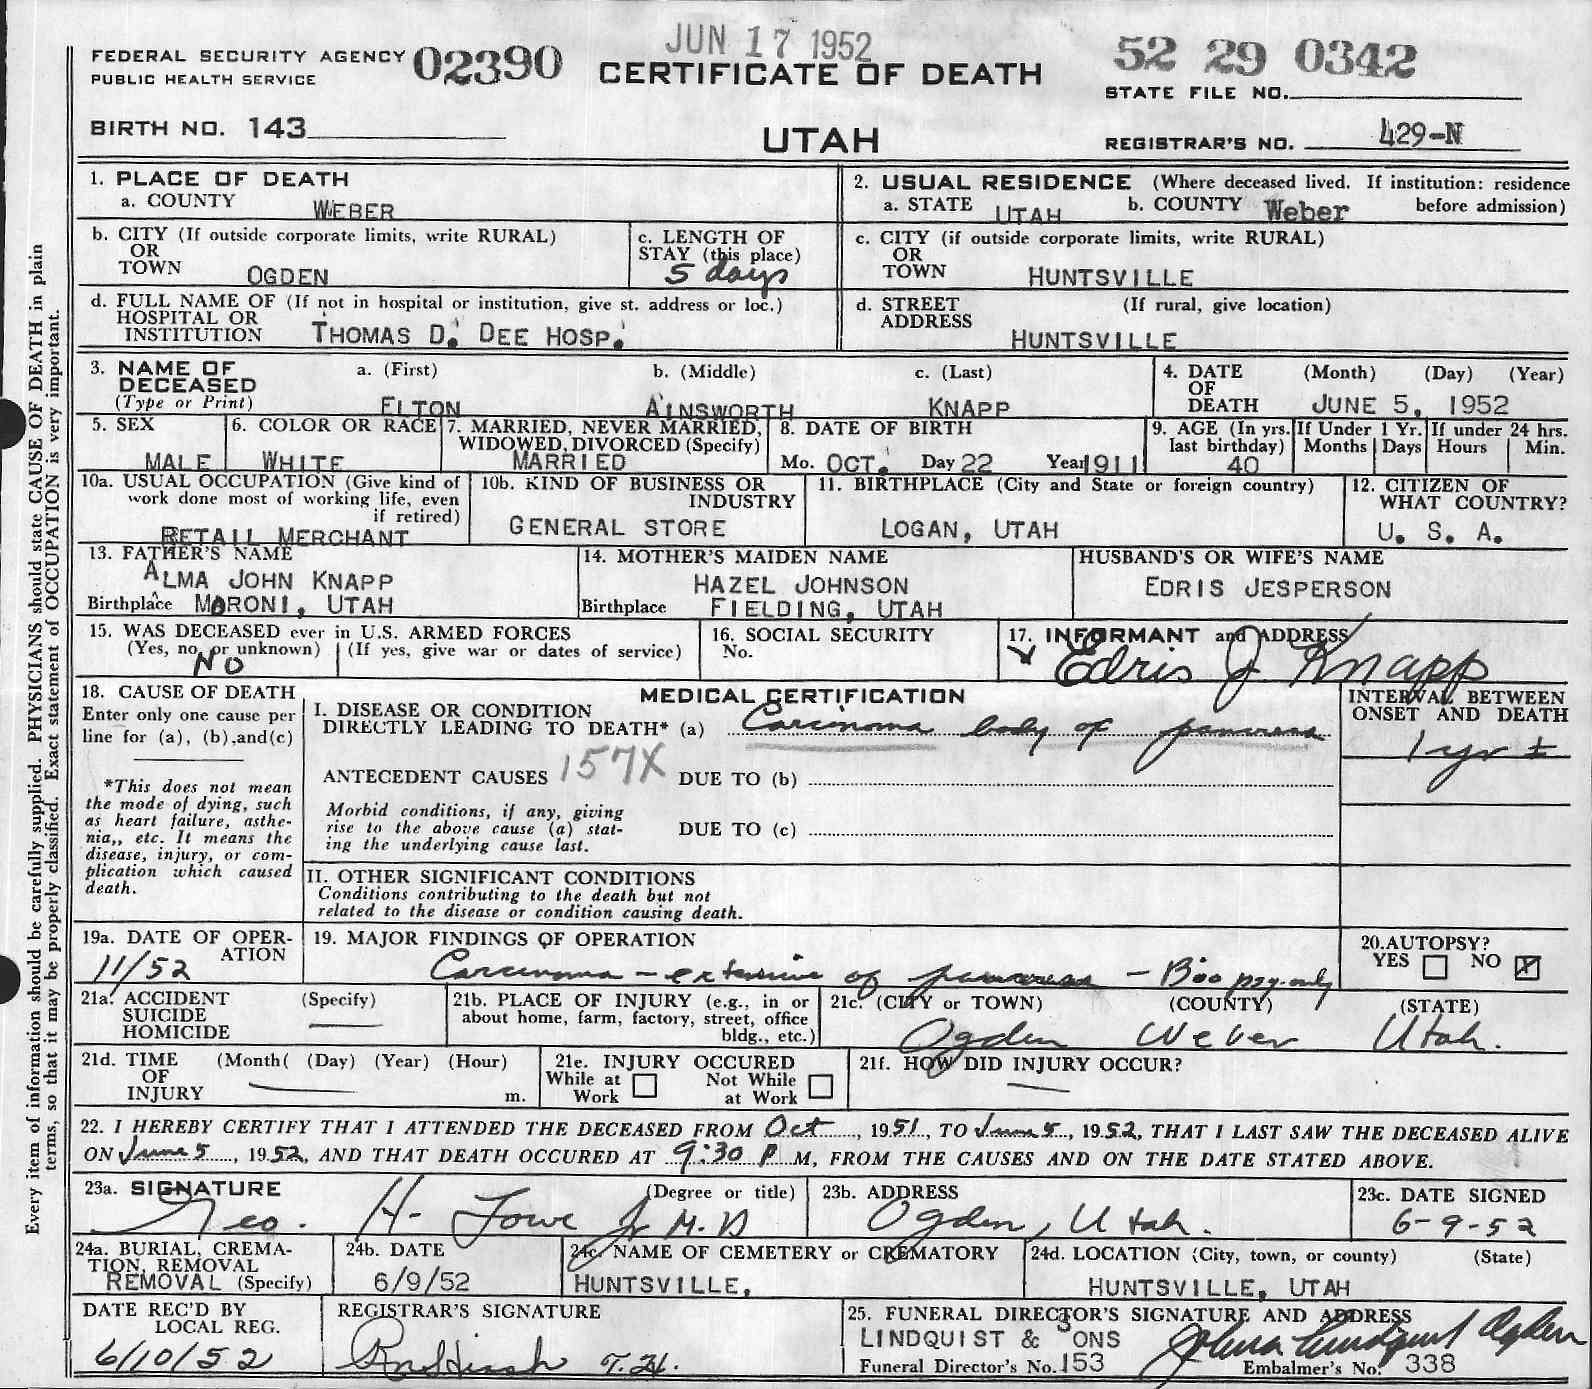 JUN 17 1952
FEDERAL SECURITY AGENCY 02390
PUBLIC HEALTH SERVICE
CERTIFICATE OF DEATH
52 29 0342
STATE FILE NO.
BIRTH NO. 143
UTAH
REGISTRAR'S NO. 429-N
1. PLACE OF DEATH
a. COUNTY WEBER
2. USUAL RESIDENCE (Where deceased lived. If institution: residence before admission)
a. STATE UTAH b. COUNTY Weber
b. CITY (If outside corporate limits, write RURAL)
OR
TOWN OGDEN
c. LENGTH OF
STAY (this place)
5 days
c. CITY (if outside corporate limits, write RURAL)
OR
TOWN HUNTSVILLE
d. FULL NAME OF (If not in hospital or institution, give st. address or loc.)
HOSPITAL OR
INSTITUTION THOMAS D. DEE HOSP.
d. STREET (If rural, give location)
ADDRESS
HUNTSVILLE
3. NAME OF a. (First) b. (Middle) c. (Last)
DECEASED
(Type or Print) ELTON AINSWORTH KNAPP
4. DATE (Month) (Day) (Year)
OF
DEATH JUNE 5, 1952
5. SEX
MALE
6. COLOR OR RACE
WHITE
7. MARRIED, NEVER MARRIED,
WIDOWED, DIVORCED (Specify)
MARRIED
8. DATE OF BIRTH
Mo. OCT. Day 22 Year 1911
9. AGE (In yrs. last birthday)
40
If Under 1 Yr.
Months Days
If under 24 hrs.
Hours Min.
10a. USUAL OCCUPATION (Give kind of
work done most of working life, even
if retired)
RETAIL MERCHANT
10b. KIND OF BUSINESS OR
INDUSTRY
GENERAL STORE
11. BIRTHPLACE (City and State or foreign country)
LOGAN, UTAH
12. CITIZEN OF
WHAT COUNTRY?
U. S. A.
13. FATHER'S NAME
ALMA JOHN KNAPP
Birthplace MORONI, UTAH
14. MOTHER'S MAIDEN NAME
HAZEL JOHNSON
Birthplace FIELDING, UTAH
HUSBAND'S OR WIFE'S NAME
EDRIS JESPERSON
15. WAS DECEASED ever in U.S. ARMED FORCES
(Yes, no, or unknown) (If yes, give war or dates of service)
NO
16. SOCIAL SECURITY
No.
17. INFORMANT and ADDRESS
Edris J Knapp
18. CAUSE OF DEATH
Enter only one cause per
line for (a), (b),and(c)
*This does not mean
the mode of dying, such
as heart failure, asthe-
nia,, etc. It means the
disease, injury, or com-
plication which caused
death.
MEDICAL CERTIFICATION
I. DISEASE OR CONDITION
DIRECTLY LEADING TO DEATH* (a) Carcinoma body of pancreas
ANTECEDENT CAUSES 157X DUE TO (b)
Morbid conditions, if any, giving
rise to the above cause (a) stat-
ing the underlying cause last.
DUE TO (c)
II. OTHER SIGNIFICANT CONDITIONS
Conditions contributing to the death but not
related to the disease or condition causing death.
INTERVAL BETWEEN
ONSET AND DEATH
1 yr ±
19a. DATE OF OPER-
ATION
11/52
19. MAJOR FINDINGS OF OPERATION
Carcinoma - extensive of pancreas - Biopsy only
20.AUTOPSY?
YES NO
21a. ACCIDENT (Specify)
SUICIDE
HOMICIDE
21b. PLACE OF INJURY (e.g., in or
about home, farm, factory, street, office
bldg., etc.)
21c. (CITY or TOWN) (COUNTY) (STATE)
Ogden Weber Utah.
21d. TIME (Month( (Day) (Year) (Hour)
OF
INJURY m.
21e. INJURY OCCURED
While at Work Not While at Work
21f. HOW DID INJURY OCCUR?
22. I HEREBY CERTIFY THAT I ATTENDED THE DECEASED FROM Oct, 1951, TO June 5, 1952, THAT I LAST SAW THE DECEASED ALIVE
ON June 5, 1952, AND THAT DEATH OCCURED AT 9:30 P M, FROM THE CAUSES AND ON THE DATE STATED ABOVE.
23a. SIGNATURE (Degree or title)
Geo. H. Lowe Jr M.D
23b. ADDRESS
Ogden, Utah.
23c. DATE SIGNED
6-9-52
24a. BURIAL, CREMA-
TION, REMOVAL
REMOVAL (Specify)
24b. DATE
6/9/52
24c. NAME OF CEMETERY or CREMATORY
HUNTSVILLE,
24d. LOCATION (City, town, or county) (State)
HUNTSVILLE, UTAH
DATE REC'D BY
LOCAL REG.
6/10/52
REGISTRAR'S SIGNATURE
25. FUNERAL DIRECTOR'S SIGNATURE AND ADDRESS
LINDQUIST & SONS
Lindquist Ogden
Funeral Director's No. 153 Embalmer's No. 338
Every item of information should be carefully supplied. PHYSICIANS should state CAUSE OF DEATH in plain
terms, so that it may be properly classified. Exact statement of OCCUPATION is very important.